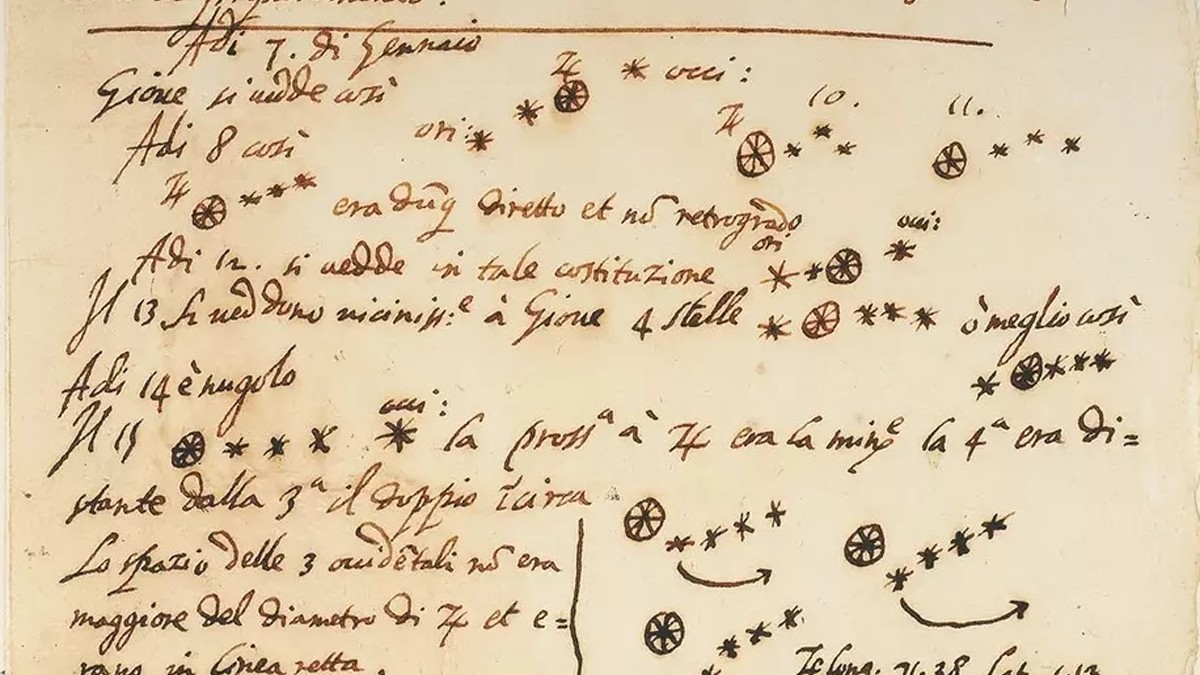 Adi 7. di Gennaio
Gioue si uedde così ♃ occi:
ori:
Adi 8 così ♃ 10. 11.
♃ era dũq diretto et nõ retrogrado
Adi 12. si uedde in tale costituzione ori occi:
Il 13 si ueddono uiciniss:ᵉ à Gioue 4 stelle ò meglio così
Adi 14 è nugolo
Il 15 occi: la prossᵃ à ♃ era la minᵉ la 4ᵃ era di=
stante dalla 3ᵃ il doppio ĩcirca
Lo spazio delle 3 ouidẽtali nõ era
maggiore del diametro di ♃ et e=
rano in linea retta.
♃ long. 71.38 lat. 1.13